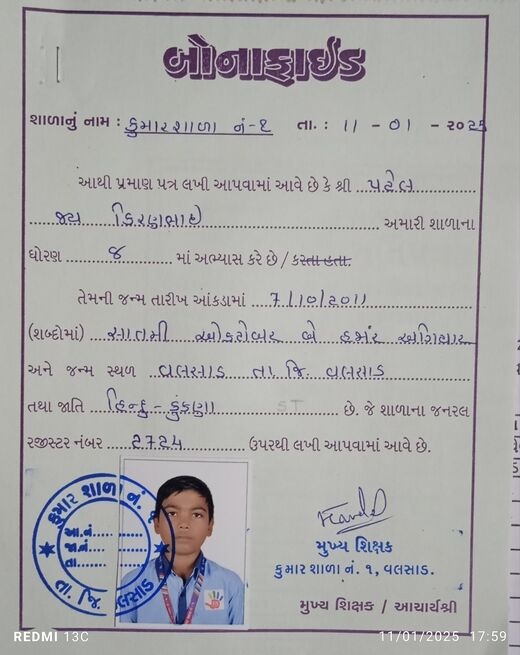 બોનાફાઈડ
શાળાનું નામ : કુમારશાળા નં-૧ તા. : 11 - 01 - ૨૦૨૬
આથી પ્રમાણ પત્ર લખી આપવામાં આવે છે કે શ્રી પટેલ
જય કિરણભાઈ અમારી શાળાના
ધોરણ ૪ માં અભ્યાસ કરે છે / કરતા હતા.
તેમની જન્મ તારીખ આંકડામાં 7/10/2011
(શબ્દોમાં) સાતમી ઓક્ટોબર બે હજાર અગિયાર
અને જન્મ સ્થળ વલસાડ તા.જિ. વલસાડ
તથા જાતિ હિન્દુ - કુંકણા ST છે. જે શાળાના જનરલ
રજીસ્ટર નંબર ૨૭૨૪ ઉપરથી લખી આપવામાં આવે છે.
કુમાર શાળા નં.
આ.નં.
જા.નં.
તા.
તા. જિ. વલસાડ
મુખ્ય શિક્ષક
કુમાર શાળા નં. ૧, વલસાડ.
મુખ્ય શિક્ષક / આચાર્યશ્રી
REDMI 13C 11/01/2025 17:59